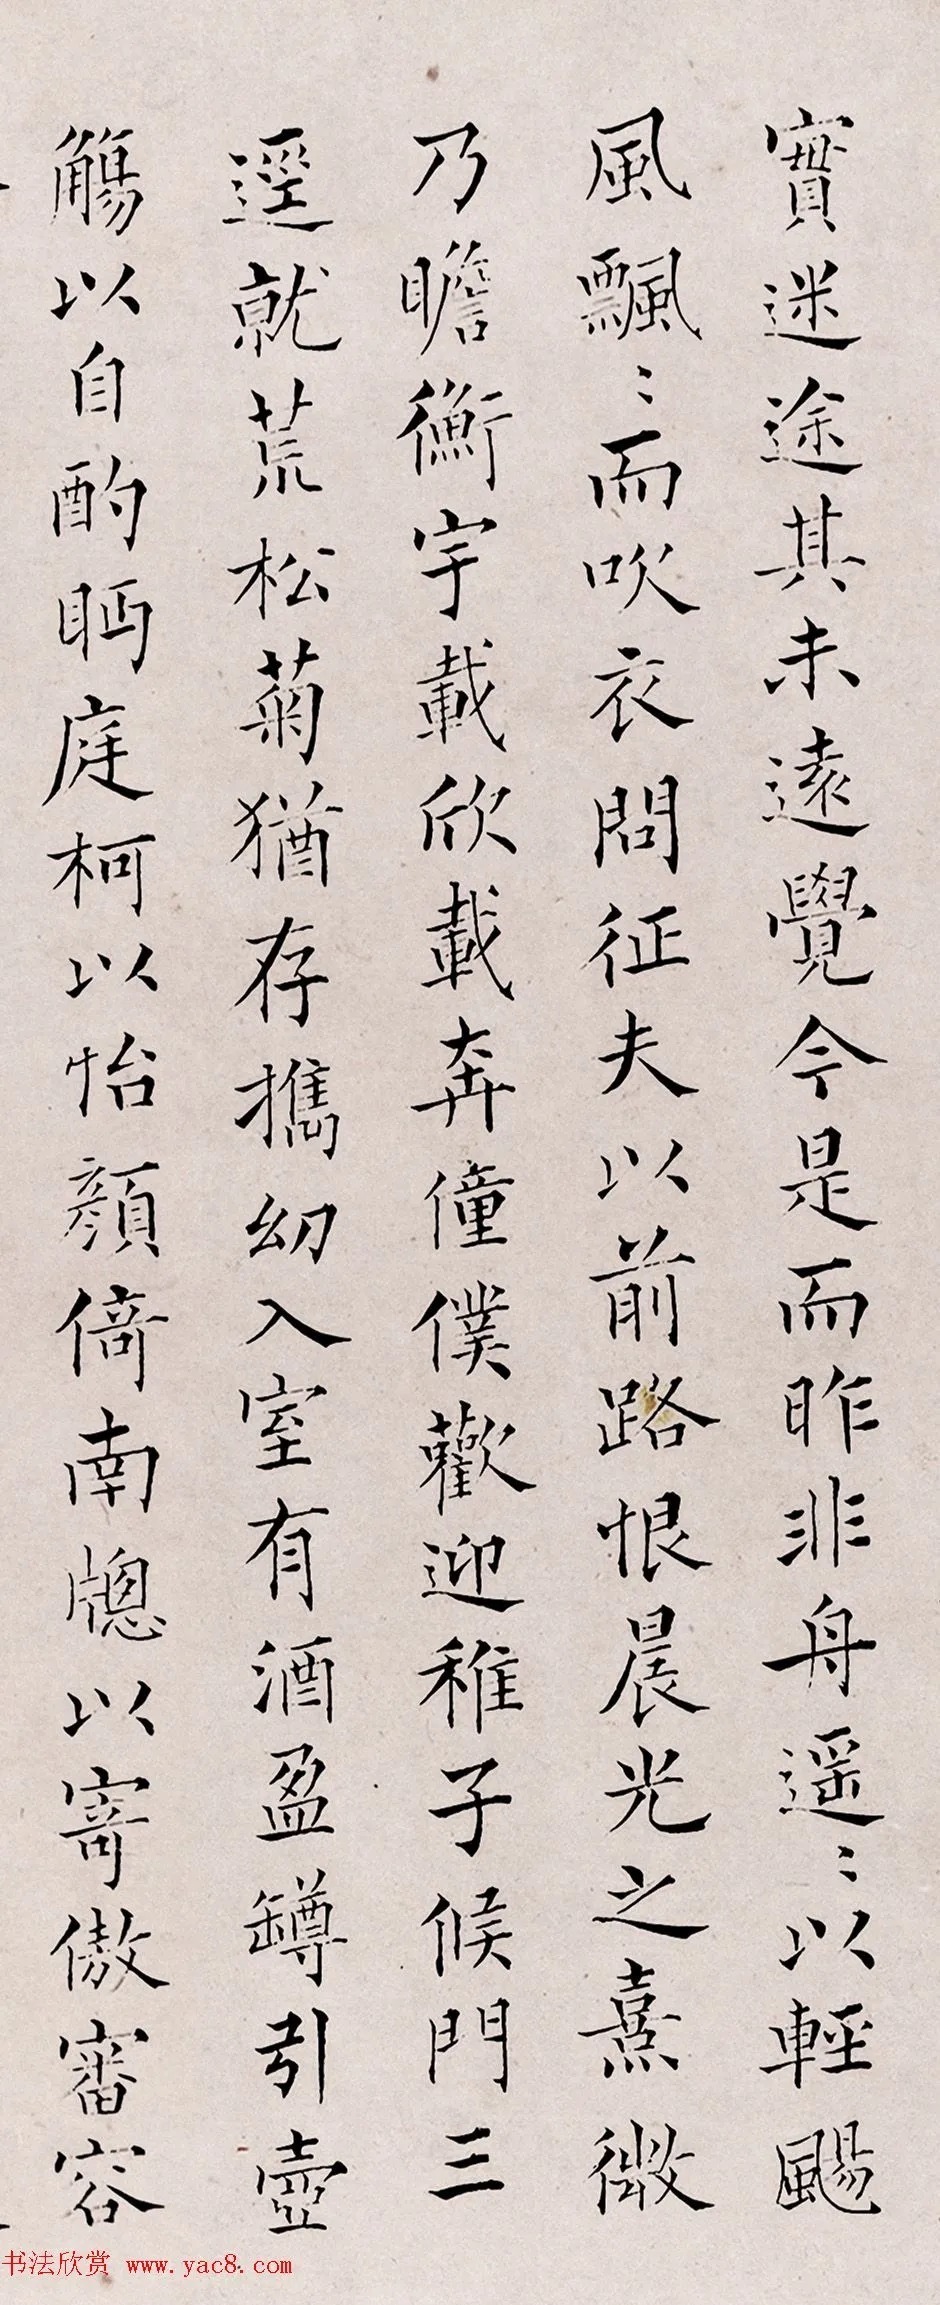 實迷途其未遠覺今是而昨非舟遥〻以輕颺
風飄〻而吹衣問征夫以前路恨晨光之熹微
乃瞻衡宇載欣載奔僮僕歡迎稚子候門三
逕就荒松菊猶存攜幼入室有酒盈罇引壺
觴以自酌眄庭柯以怡顏倚南牕以寄傲審容
书法欣赏 www.yac8.com